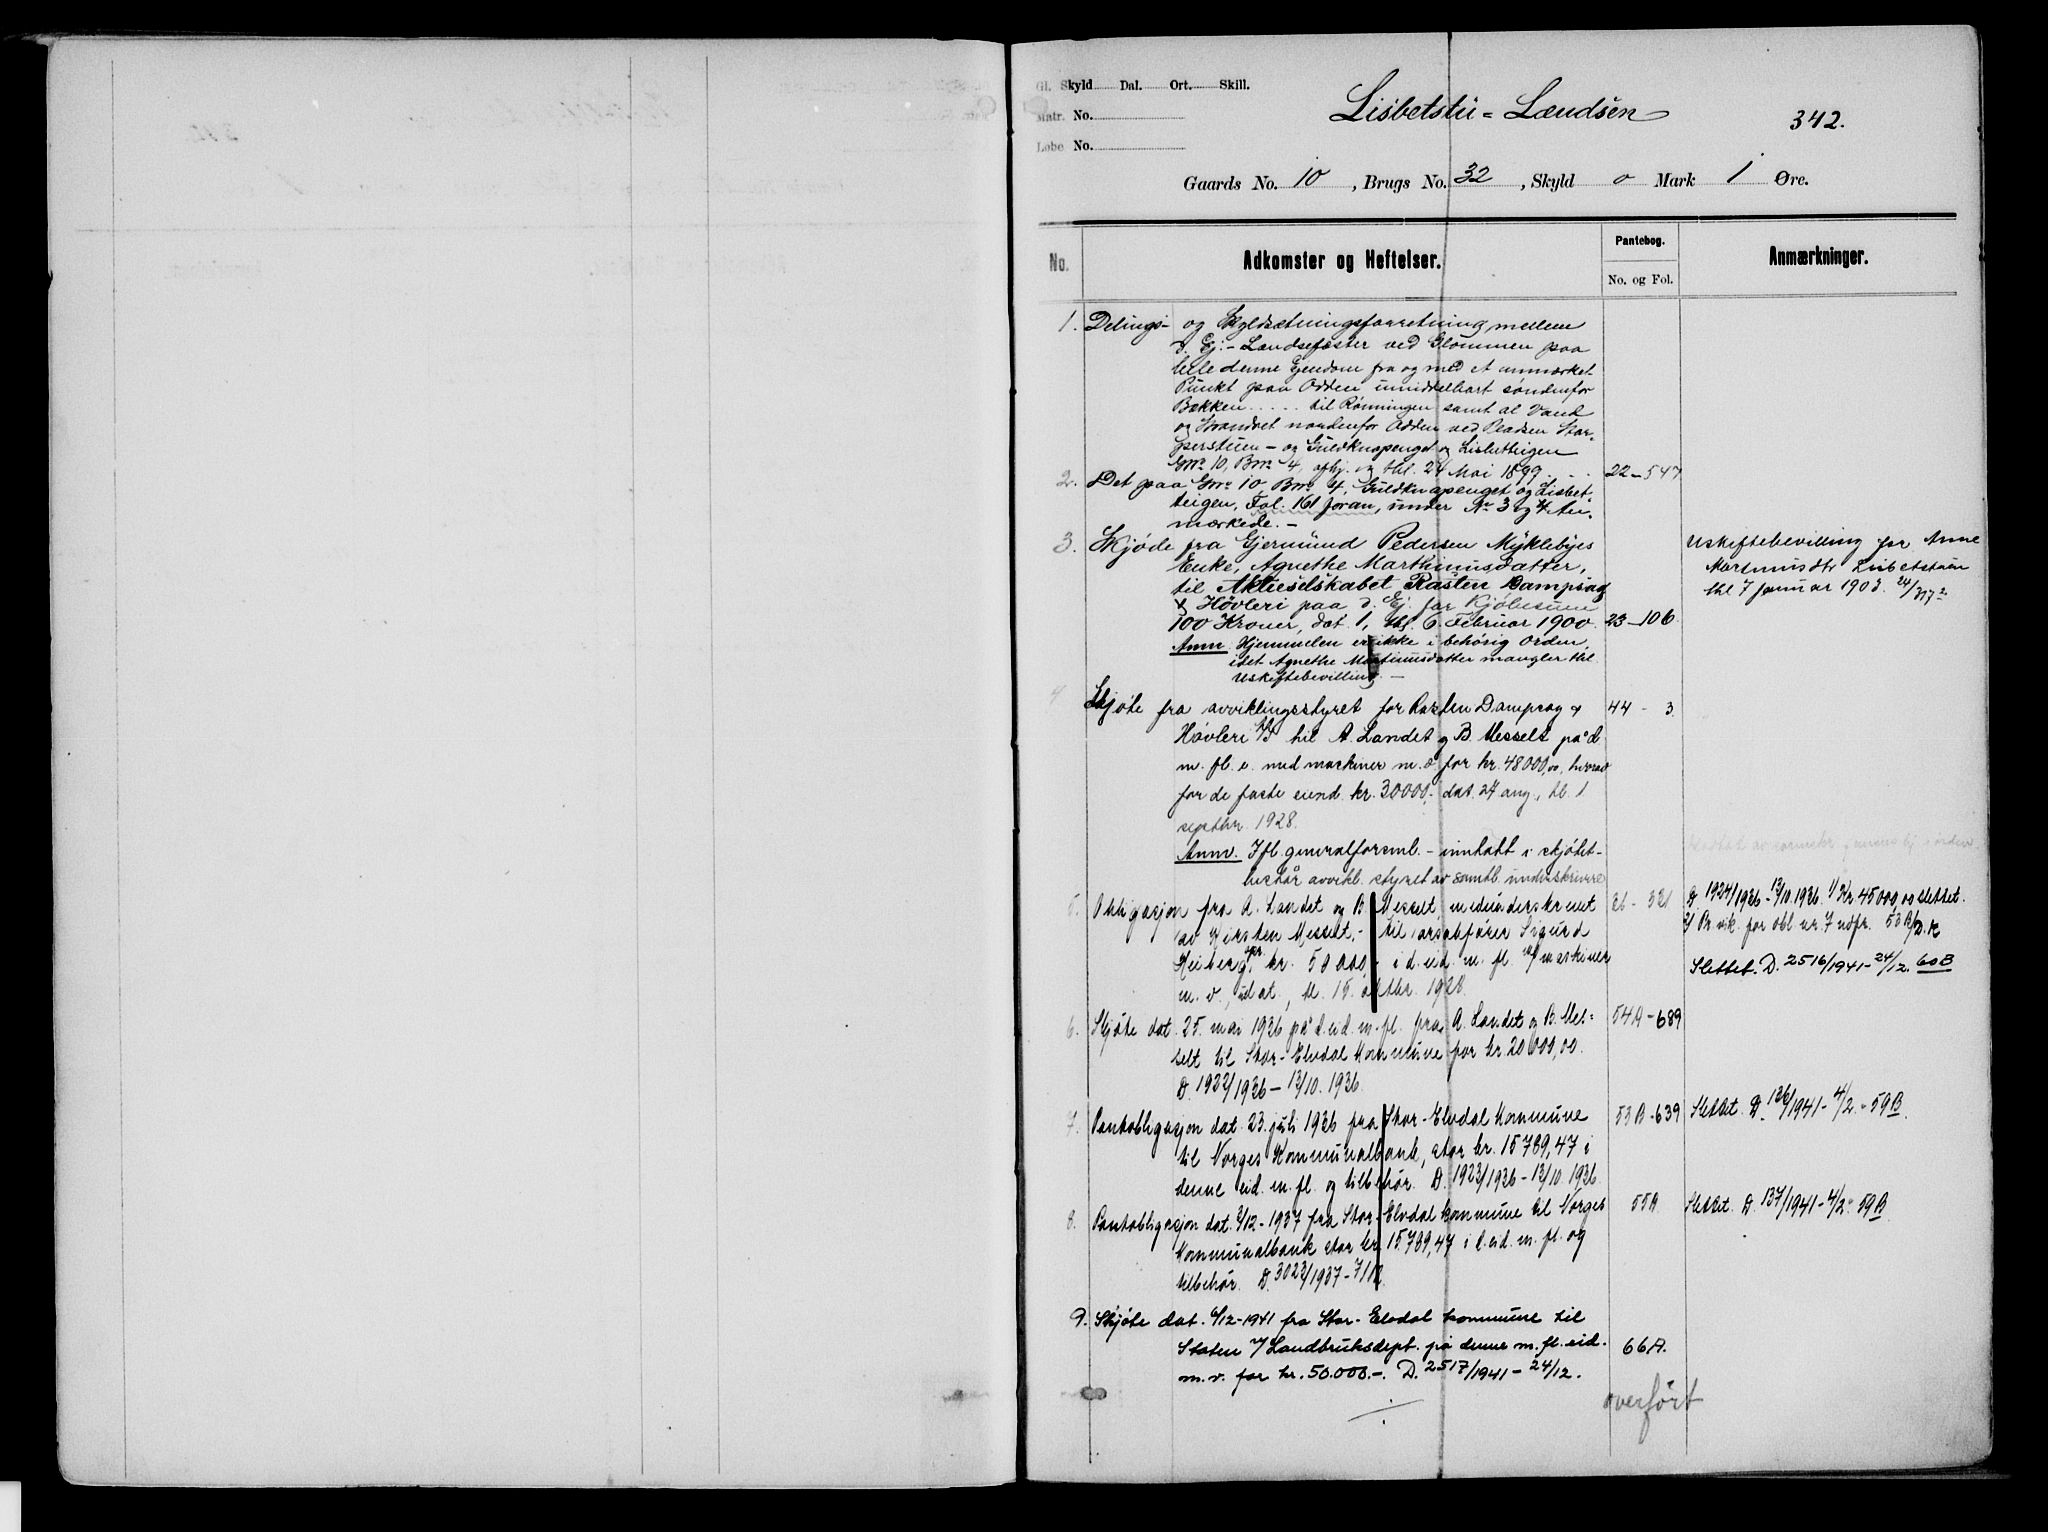 Gl. Skyld Dal. Ort. Skill.
Matr. No.
Løbe No.
Lisbetstu-Lændsen
342.
Gaards No. 10, Brugs No. 32, Skyld 0 Mark 1 Øre.
No.
Adkomster og Heftelser.
Pantebog.
No. og Fol.
Anmærkninger.
1. Delings- og Skyldsætningsforretning mellem
d. Ej: - Lændsefæster ved Glommen paa
hele denne Ejendom fra og med et anmærket
Punkt paa Odden umiddelbart søndenfor
Bækken ..... til Rønningen samt al Vand
og Strandret nordenfor Odden ved
- og Guldknapenget og Lisbetteigen
Gno 10, Bno 4, afhj. og thl. 24 Mai 1899 . . . 22-547
2. Det paa Gno 10 Bno 4, Guldknapenget og Lisbet-
teigen, Fol. 161 foran, under No 3 og 4 An-
mærkede. -
3. Skjøde fra Gjermund Pedersen Myklebyes
Enke, Agnethe Marthinusdatter,
til Aktieselskabet Rasten Dampsag
& Høvleri paa d. Ej. for Kjøbesum
100 Kroner, dat. 1, thl. 6 Februar 1900. 23-106
Anm. Hjemmelen er ikke i behørig Orden,
idet Agnethe Martinusdatter mangler thl.
Uskiftebevilling. -
Uskiftebevilling for Anne
Martinusdtr Lisbetstuen
thl 7 januar 1903. 24/317
4 Skjøte fra avviklingsstyret for Rasten Dampsag & 44 - 3.
Høvleri A/S til A. Landet og B. Messelt på d.
m. fl. e. med maskiner m. v. for kr. 48000,00, hvorav
for de faste eiend. kr. 30000,- dat. 24 aug., tl. 1
septbr. 1928.
Anm. Ifl. generalforsaml. - inntatt i skjøtet -
består avvikl. styret av samtl. underskrivere
5. Obligasjon fra A. Landet og B. Messelt, medunderskrevet 26 - 321
av Kirsten Messelt, - til
Heiberg, opr. kr. 50000,- i d. eid. m. fl. m/ maskiner
m. v., udat., tl. 15. oktbr. 1928.
D. 1924/1936 - 13/10. 1936. 1/ Kr 45000,00 slettet.
2/ Pr. vik. for obl nr. 7 utfr. 53 B/
Slettet. D. 2516/1941 - 24/12. 60B
6. Skjøte dat. 25. mai 1936 på d. eid. m. fl. fra A. Landet og B. Mes- 54A-689
selt til Stor-Elvdal Kommune for kr 20000,00.
D. 1922/1936 - 13/10. 1936.
7. Pantobligasjon dat. 23. juli 1936 fra Stor-Elvdal Kommune 53 B-639
til Norges Kommunalbank, stor kr. 15789,47 i
denne eid. m. fl. og tilbehør. D. 1923/1936 - 13/10 1936.
Slettet. D. 136/1941 - 4/2. - 59B.
8. Pantobligasjon dat. 2/12-1937 fra Stor-Elvdal kommune til Norges 55A
Kommunalbank stor kr. 15789,47 i d. eid. m. fl. og
tilbehør. D. 3023/1937 - 7/12.
Slettet. D. 137/1941 - 4/2. 59B
9. Skjøte dat. 6/12-1941 fra Stor-Elvdal kommune til
Staten v/ Landbruksdept. på denne m. fl. eid. 66A.
m. v. for kr. 50.000.-. D. 2517/1941 - 24/12.
overført